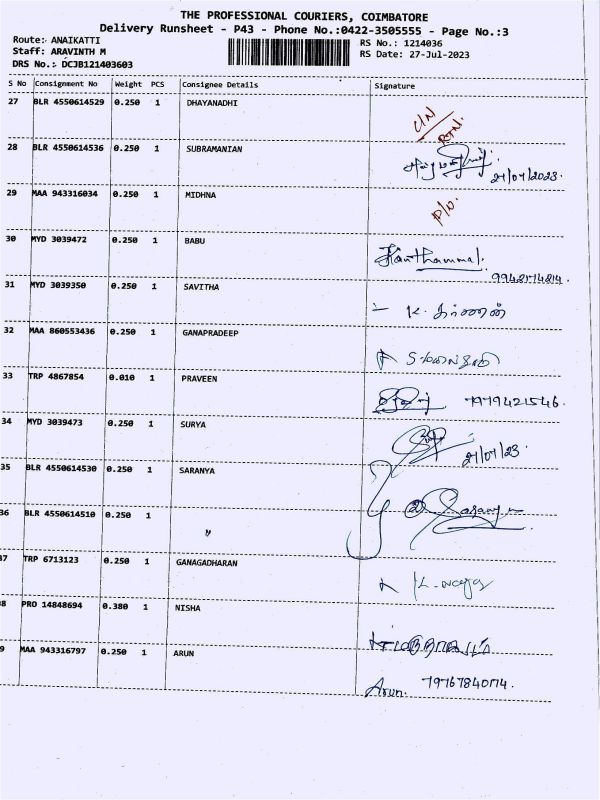 THE PROFESSIONAL COURIERS, COIMBATORE
Delivery Runsheet - P43 - Phone No.:0422-3505555 - Page No.:3
Route:- ANAIKATTI
Staff: ARAVINTH M
DRS No.:- DCJB121403603
RS No.: 1214036
RS Date: 27-Jul-2023
S No Consignment No Weight PCS Consignee Details Signature
27 BLR 4550614529 0.250 1 DHAYANADHI
C/N
RTN
28 BLR 4550614536 0.250 1 SUBRAMANIAN
21/07/2023
29 MAA 943316034 0.250 1 MIDHNA
30 MYD 3039472 0.250 1 BABU
Kanthammal.
31 MYD 3039350 0.250 1 SAVITHA
32 MAA 860553436 0.250 1 GANAPRADEEP
33 TRP 4867854 0.010 1 PRAVEEN
7979421546.
34 MYD 3039473 0.250 1 SURYA
35 BLR 4550614530 0.250 1 SARANYA
36 BLR 4550614510 0.250 1 "
37 TRP 6713123 0.250 1 GANAGADHARAN
38 PRO 14848694 0.380 1 NISHA
39 MAA 943316797 0.250 1 ARUN
Arun.